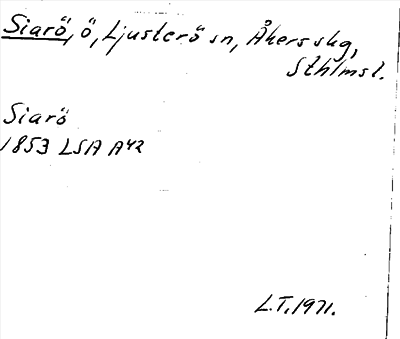 Siarö, ö, Ljusterö sn, Åkers skg,
Sthlmsl.
Siarö
1853 LSA A42
L.T. 1971.